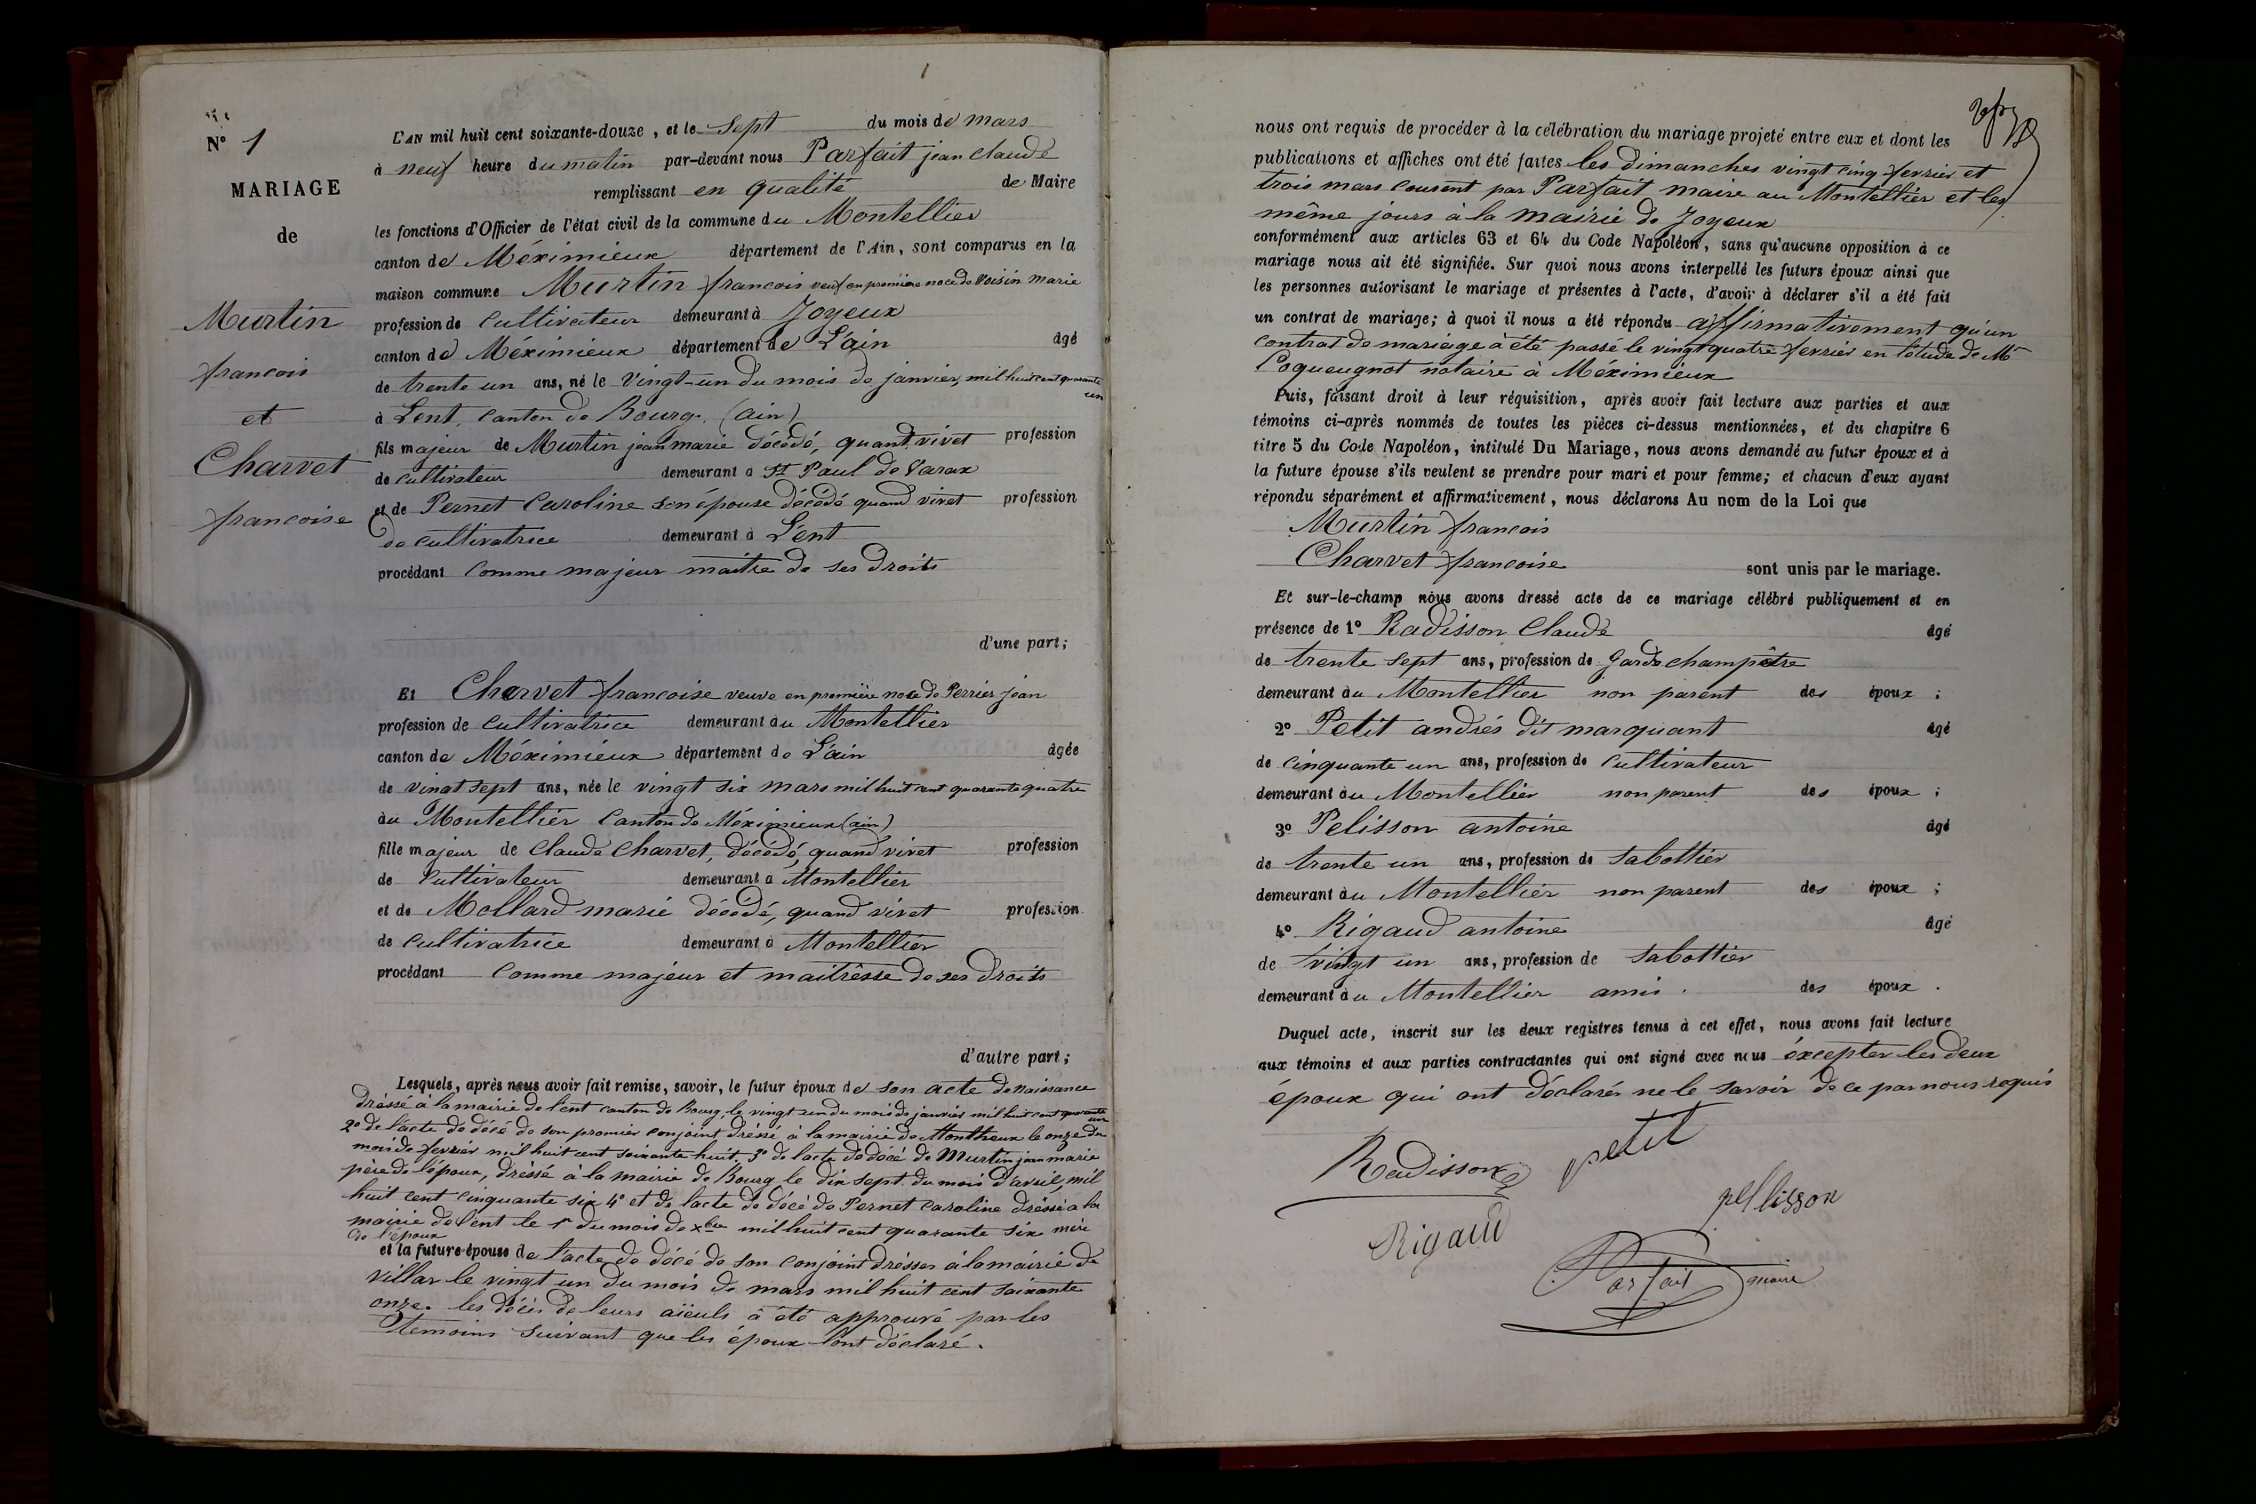 1
N° 1
MARIAGE
de
Murtin
francois
et
Charvet
francoise
L'AN mil huit cent soixante-douze, et le Sept du mois de mars
à neuf heure du matin par-devant nous Parfait jean claude
remplissant en qualité de Maire
les fonctions d'Officier de l'état civil de la commune du Montellier
canton de Méximieux département de l'Ain, sont comparus en la
maison commune Murtin francois veuf en première noce de Voisin Marie
profession de Cultivateur demeurant à Joyeux
canton de Méximieux département de L'ain âgé
de trente un ans, né le Vingt-un du mois de janvier, mil huit cent quarante
un
à Lent, canton de Bourg. (ain)
fils majeur de Murtin jean marie décédé, quand vivet profession
de cultivateur demeurant à St Paul de Varax
et de Pernet Caroline son épouse décédé quand vivet profession
de cultivatrice demeurant à L'ent
procédant comme majeur maitre de ses droits
d'une part;
Et Charvet francoise veuve en première noce de Perrier jean
profession de cultivatrice demeurant au Montellier
canton de Méximieux département de L'ain âgée
de vingt sept ans, née le vingt six mars mil huit cent quarante quatre
au Montellier Canton de Méximieux (ain)
fille majeur de Claude Charvet, décédé, quand vivet profession
de Cultivateur demeurant à Montellier
et de Mollard marie décédé, quand vivet profession
de cultivatrice demeurant à Montellier
procédant Comme majeur et maitrêsse de ses droits
d'autre part;
Lesquels, après nous avoir fait remise, savoir, le futur époux de son acte de naissance
dréssé à la mairie de l'ent canton de Bourg, le vingt un du mois de janvier mil huit cent quarante
un
2° de l'acte de décé de son premier conjoint dréssé à la mairie de Monthieux le onze du
mois de fevrier mil huit cent soixante huit. 3° de l'acte de décé de Murtin jean marie
père de l'époux, dréssé à la mairie de Bourg le dix sept du mois d'avril, mil
huit cent cinquante six 4° et de l'acte de décé de Pernet Caroline dréssé à la
mairie de l'ent le 1er du mois de xbre mil huit cent quarante six mère
de l'époux
et la future épouse de l'acte de décé de son conjoint drésser à la mairie de
villar le vingt un du mois de mars mil huit cent soixante
onze. les décès de leurs aïeuls à été approuvé par les
témoins suivant que les époux l'ont déclaré.
nous ont requis de procéder à la célébration du mariage projeté entre eux et dont les
publications et affiches ont été faites les dimanches vingt cinq fevrier et
trois mars courent par Parfait maire au Montellier et les
même jours à la mairie de Joyeux
conformément aux articles 63 et 64 du Code Napoléon, sans qu'aucune opposition à ce
mariage nous ait été signifiée. Sur quoi nous avons interpellé les futurs époux ainsi que
les personnes autorisant le mariage et présentes à l'acte, d'avoir à déclarer s'il a été fait
un contrat de mariage; à quoi il nous a été répondu affirmativement qu'un
contrat de mariage à été passé le vingt quatre fevrier en l'étude de Me
Coqueugnot notaire à Méximieux
Puis, faisant droit à leur réquisition, après avoir fait lecture aux parties et aux
témoins ci-après nommés de toutes les pièces ci-dessus mentionnées, et du chapitre 6
titre 5 du Code Napoléon, intitulé Du Mariage, nous avons demandé au futur époux et à
la future épouse s'ils veulent se prendre pour mari et pour femme; et chacun d'eux ayant
répondu séparément et affirmativement, nous déclarons Au nom de la Loi que
Murtin francois
Charvet francoise
sont unis par le mariage.
Et sur-le-champ nous avons dressé acte de ce mariage célébré publiquement et en
présence de 1° Radisson Claude âgé
de trente sept ans, profession de Garde champêtre
demeurant au Montellier non parent des époux;
2° Petit andrés dit marquant âgé
de cinquante un ans, profession de Cultivateur
demeurant au Montellier non parent des époux;
3° Pelisson antoine âgé
de trente un ans, profession de Sabottier
demeurant au Montellier non parent des époux;
4° Rigaud antoine âgé
de vingt un ans, profession de Sabottier
demeurant au Montellier amis. des époux.
Duquel acte, inscrit sur les deux registres tenus à cet effet, nous avons fait lecture
aux témoins et aux parties contractantes qui ont signé avec nous éxcepter les deux
époux qui ont déclarés ne le savoir de ce par nous requis
Radisson petit
pellisson
Rigaud
Parfait maire